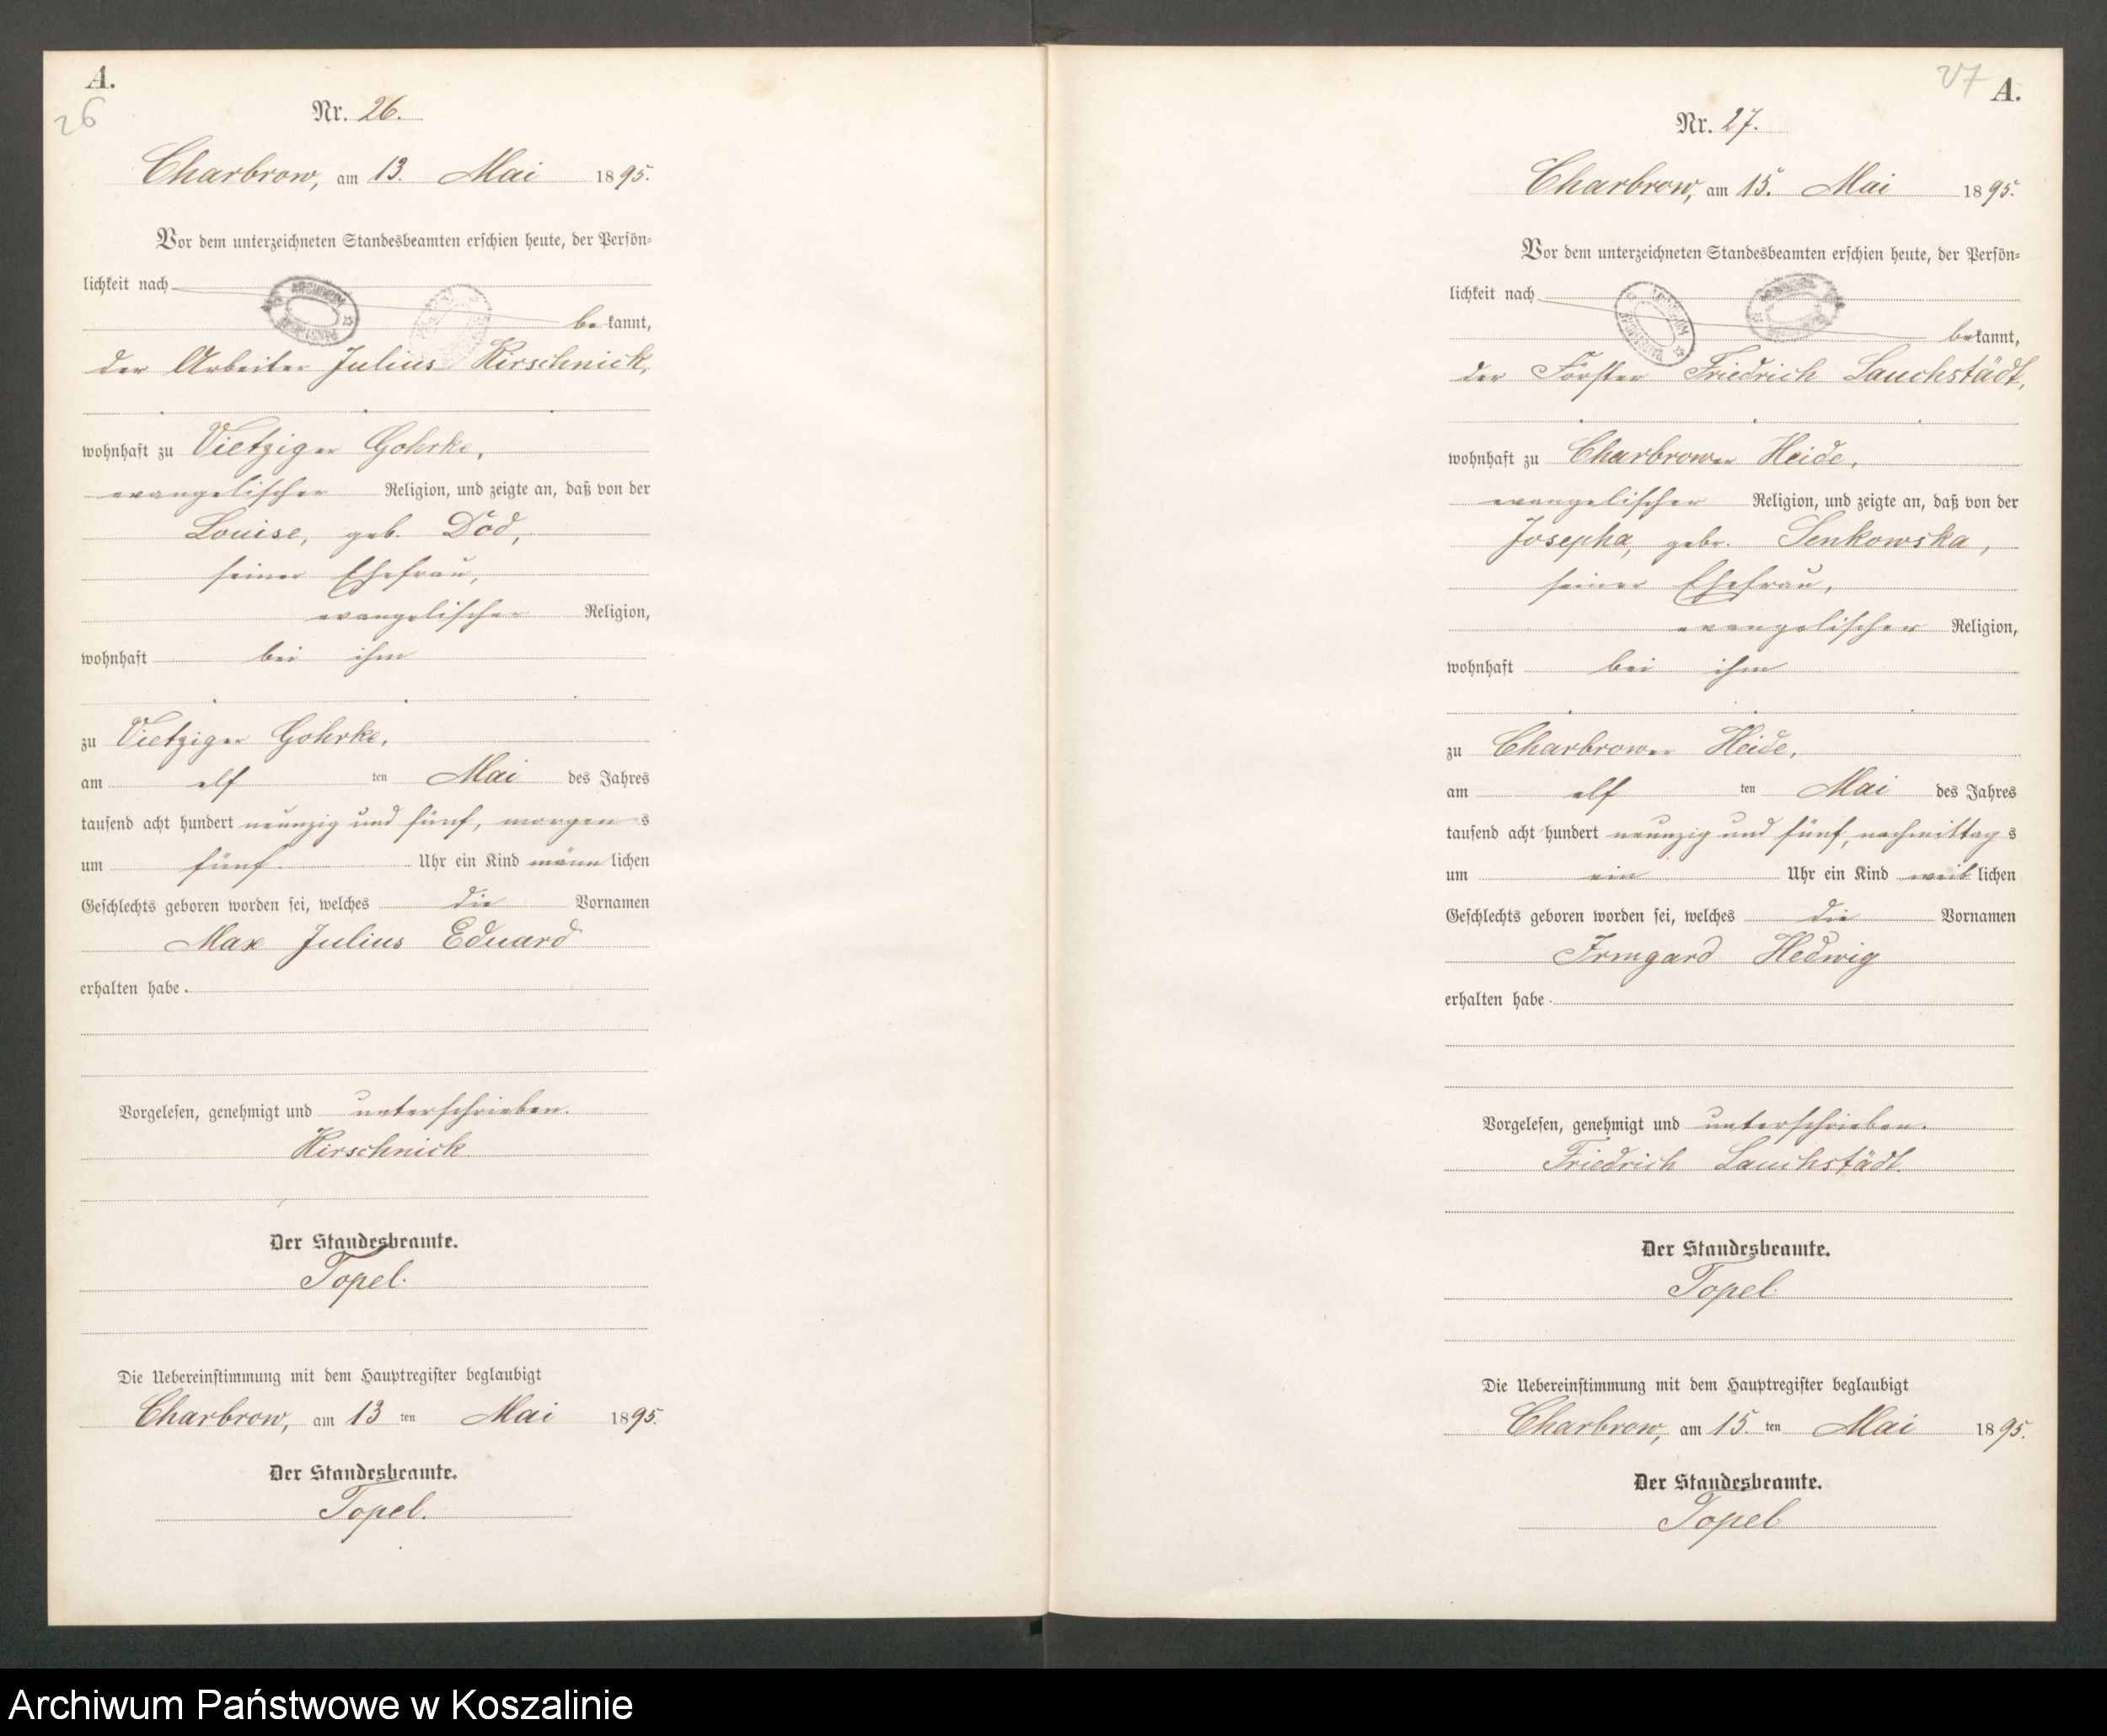 A.
26
Nr. 26.
Charbrow, am 13. Mai 1895.
Vor dem unterzeichneten Standesbeamten erschien heute, der Persön-
lichkeit nach
bekannt,
der Arbeiter Julius Kirschnick,
wohnhaft zu Vietziger Gohrke,
evangelischer Religion, und zeigte an, daß von der
Louise, geb. Död,
seiner Ehefrau,
evangelischer Religion,
wohnhaft bei ihm
zu Vietziger Gohrke,
am elf ten Mai des Jahres
tausend acht hundert neunzig und fünf, morgens
um fünf Uhr ein Kind männlichen
Geschlechts geboren worden sei, welches die Vornamen
Max Julius Eduard
erhalten habe.
Vorgelesen, genehmigt und unterschrieben.
Kirschnick
Der Standesbeamte.
Topel.
Die Uebereinstimmung mit dem Hauptregister beglaubigt
Charbrow, am 13 ten Mai 1895.
Der Standesbeamte.
Topel.
27 A.
Nr. 27.
Charbrow, am 15. Mai 1895.
Vor dem unterzeichneten Standesbeamten erschien heute, der Persön-
lichkeit nach
bekannt,
der Förster Friedrich Lauchstädt,
wohnhaft zu Charbrower Heide,
evangelischer Religion, und zeigte an, daß von der
Josepha, gebr. Senkowska,
seiner Ehefrau,
evangelischer Religion,
wohnhaft bei ihm
zu Charbrower Heide,
am elf ten Mai des Jahres
tausend acht hundert neunzig und fünf, nachmittags
um ein Uhr ein Kind weiblichen
Geschlechts geboren worden sei, welches die Vornamen
Irmgard Hedwig
erhalten habe.
Vorgelesen, genehmigt und unterschrieben.
Friedrich Lauchstädt.
Der Standesbeamte.
Topel.
Die Uebereinstimmung mit dem Hauptregister beglaubigt
Charbrow, am 15. ten Mai 1895.
Der Standesbeamte.
Topel.
Archiwum Państwowe w Koszalinie